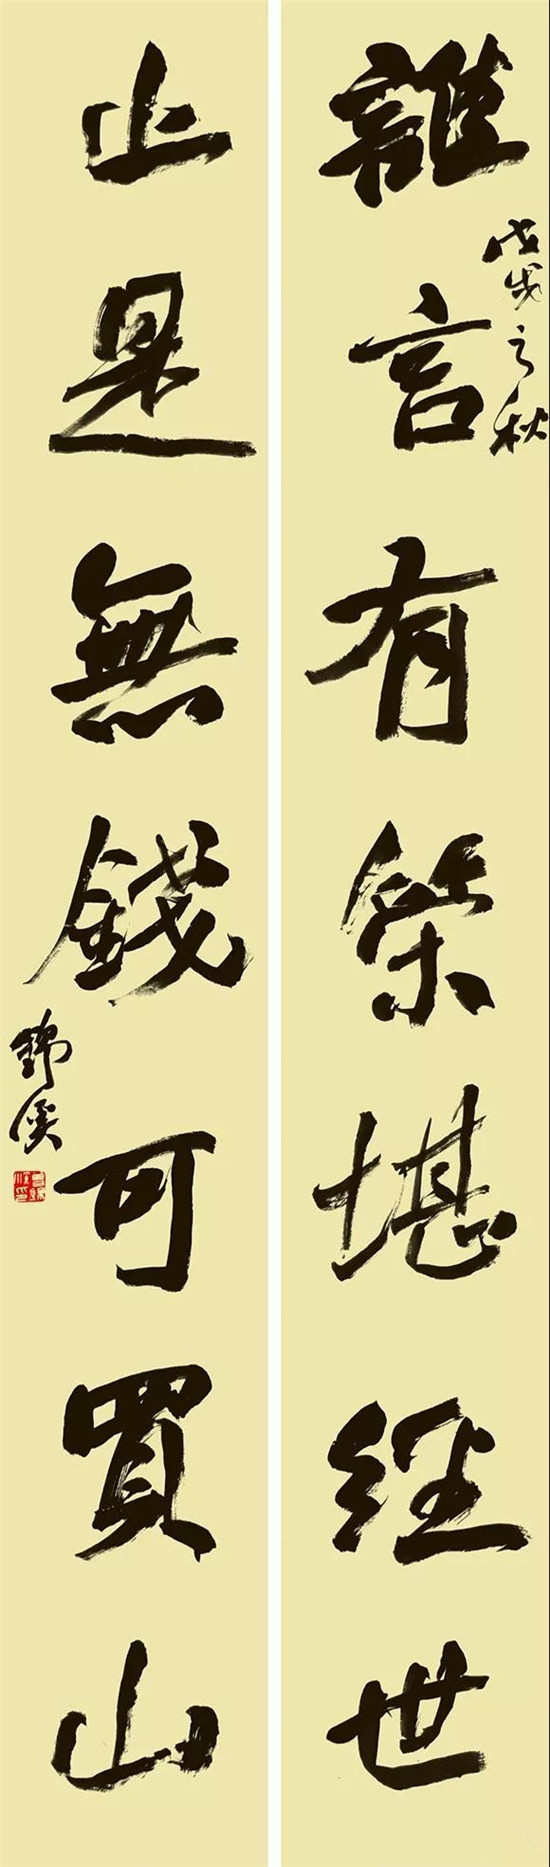 戊戌之秋
誰言有策堪經世
止是無錢可買山
錦